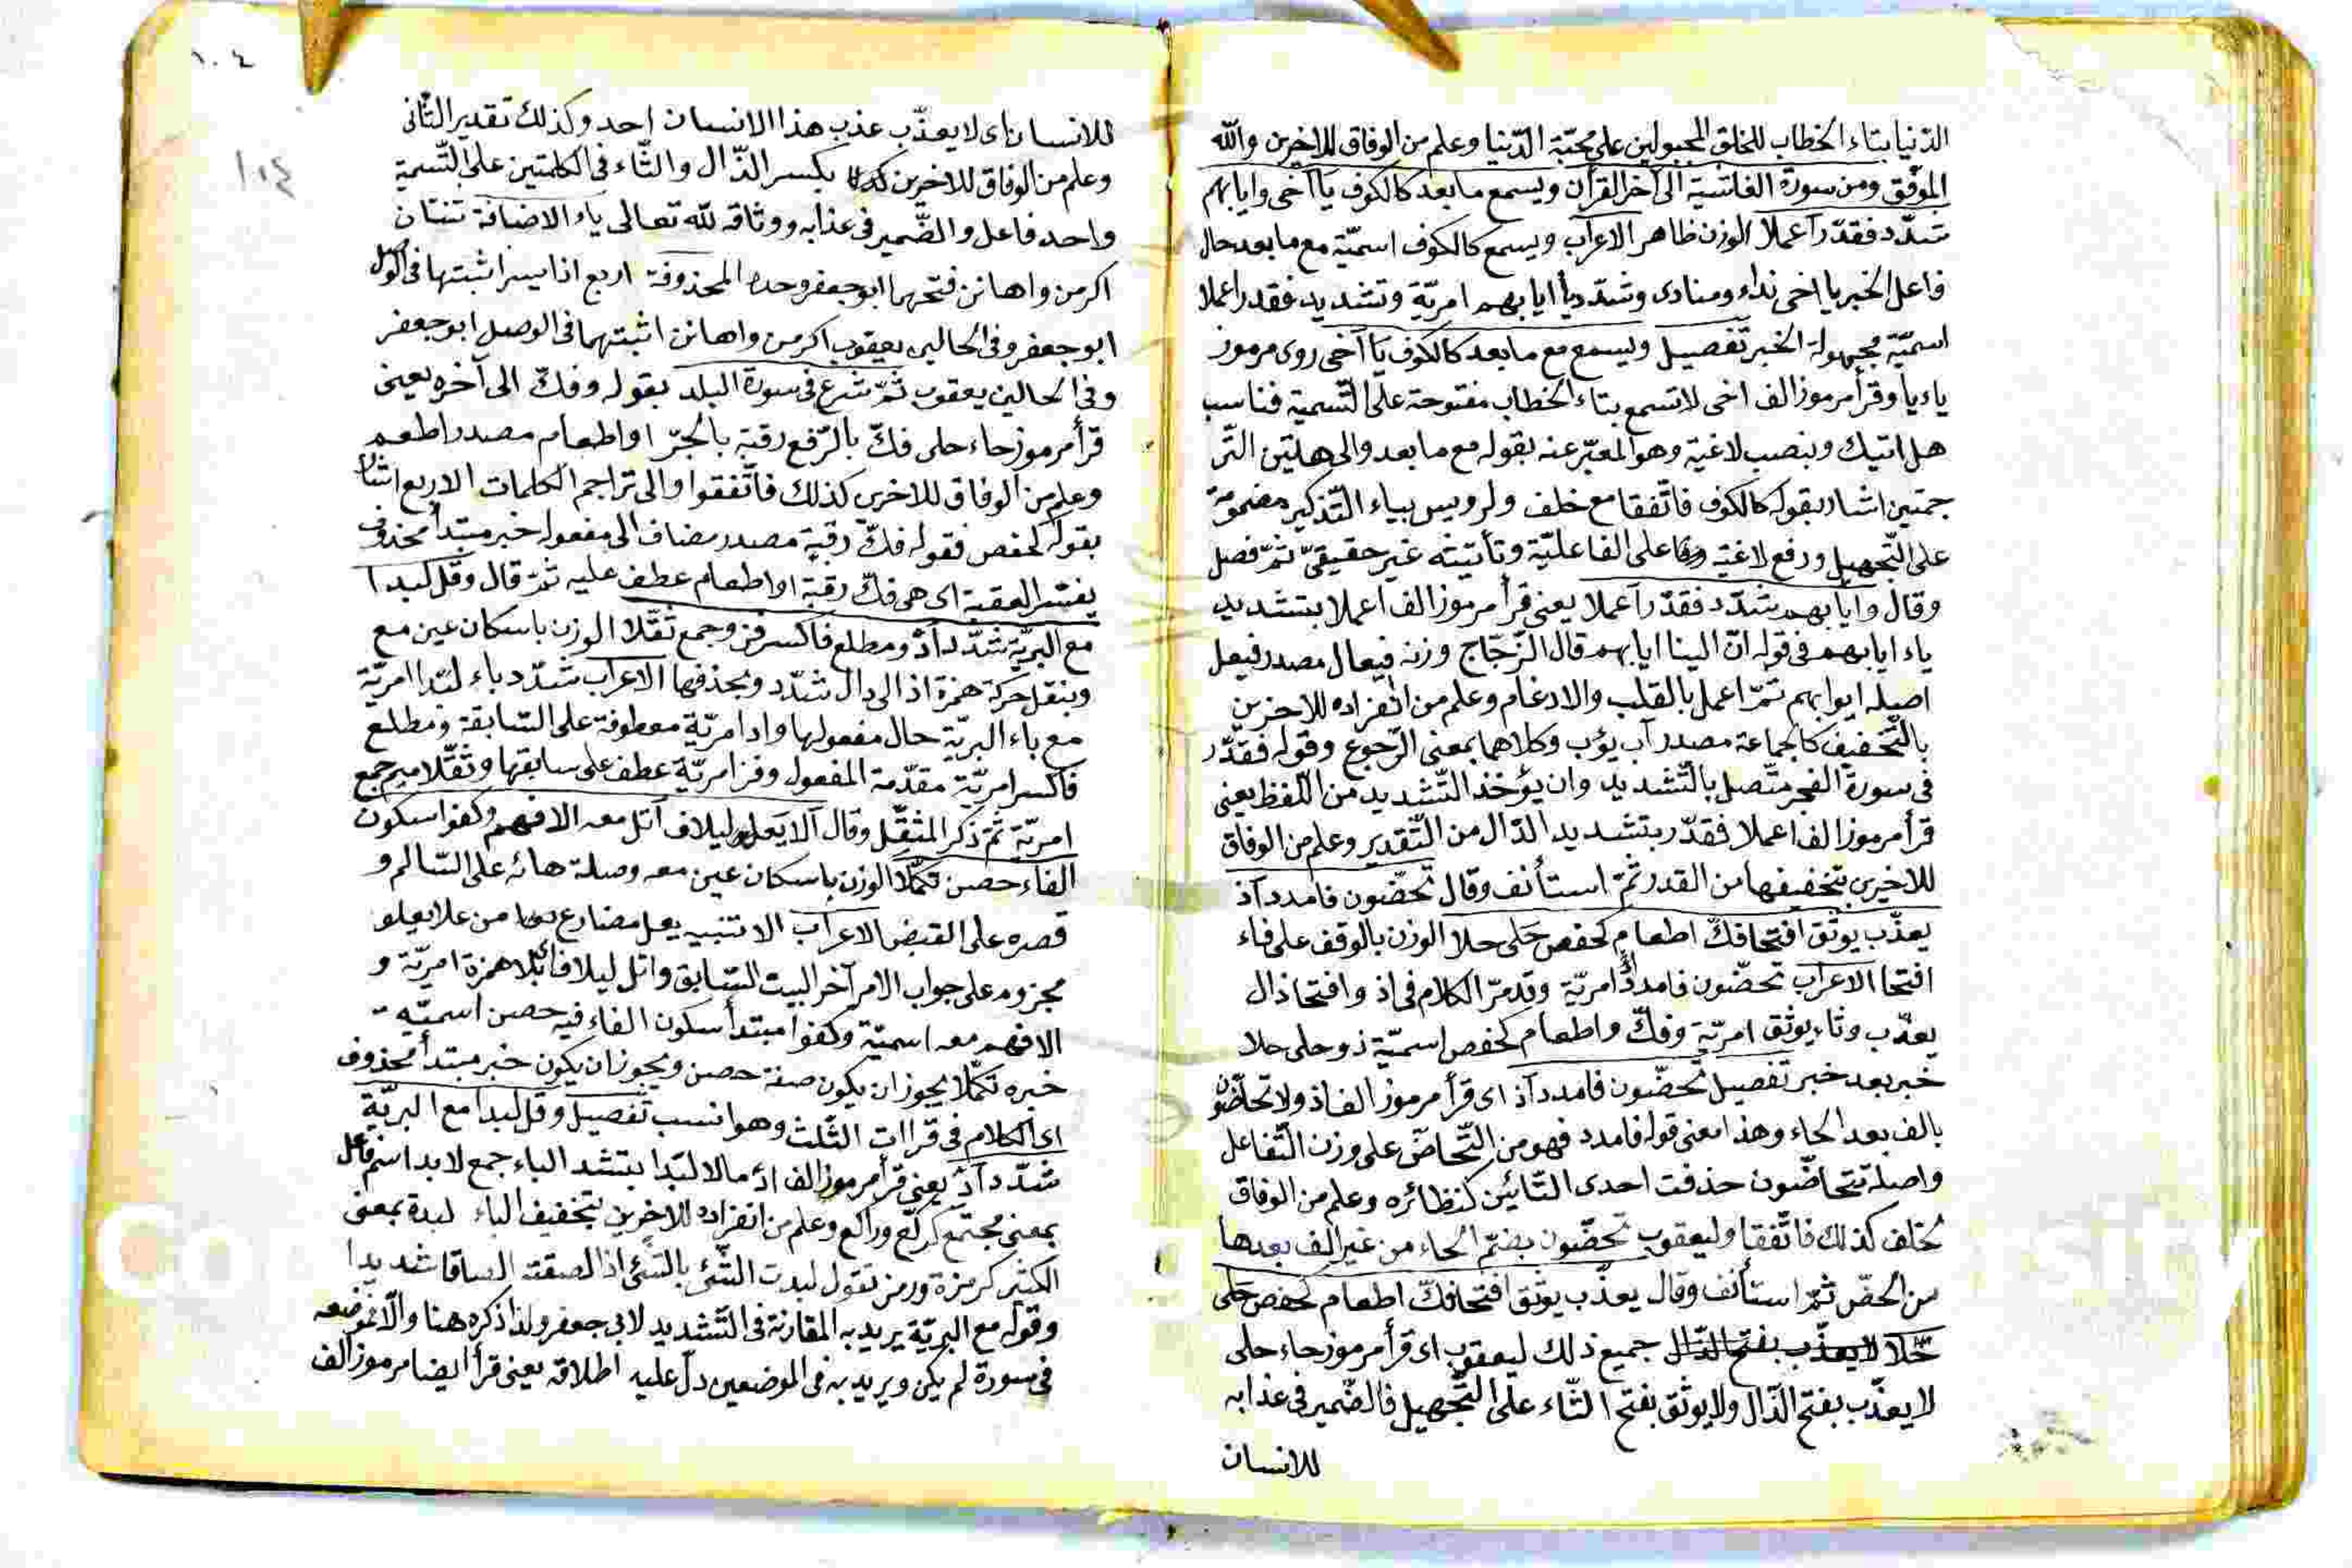 الدّنيا بتاء الخطاب للخلق المجبولين على محبّة الدّنيا وعلم من الوفاق للاخرين والله
الموفّق ومن سورة الغاشية الى آخر القرآن ويسمع ما بعد كالكوف يا آخى وايابهم
شدّد فقدّر آعملا الوزن ظاهر الاعراب ويسمع كالكوف اسميّة مع ما بعد حال
فاعل الخبر يا اخى نداء ومنادى وشدّد يا ايابهم امريّة وتشديد فقدر اعملا
اسميّة مجهولة الخبر تفصيل ويسمع مع ما بعد كالكوف يا آخى روى مرموز
ياء يا وقرأ مرموز الف اخى لا تسمع بتاء الخطاب مفتوحة على التّسمية فناسب
هل اتيك وبنصب لاغية وهو المعبّر عنه بقوله مع ما بعد والى هلتين التّر
جمتين اشار بقوله كالكوف فاتّفقا مع خلف ولرويس بياء التّذكير مضمومة
على التّجهيل ورفع لاغية على الفاعليّة وتأنيثه غير حقيقىّ ثمّ فصل
وقال وايابهم شدّد فقدّر آعملا يعنى قرأ مرموز الف اعملا بتشديد
ياء ايابهم فى قوله انّ الينا ايابهم قال الزّجّاج وزنه فيعال مصدر فيعل
اصله ايوابهم ثمّ اعمل بالقلب والادغام وعلم من انفراده للاخرين
بالتّخفيف كالجماعة مصدر آب يؤب وكلاهما بمعنى الرّجوع وقوله فقدّر
فى سورة الفجر متّصل بالتّشديد وان يؤخذ التّشديد من اللّفظ يعنى
قرأ مرموز الف اعملا فقدّر بتشديد الدّال من التّقدير وعلم من الوفاق
للاخرين بتخفيفها من القدر ثمّ استأنف وقال تحضّون فامدد آذ
يعذّب يوثق افتحا فكّ اطعام كحفص حَلى حلا الوزن بالوقف على فاء
افتحا الاعراب تحضّون فامدد امريّة وقد مرّ الكلام فى اذ وافتحا ذال
يعذّب وثاء يوثق امريّة وفكّ واطعام كحفص اسميّة ذو حلى حلا
خبر بعد خبر تفصيل تحضّون فامدد آذ اى قرأ مرموز الف اذ ولا تحاضّون
بالف بعد الحاء وهذا معنى قوله فامدد فهو من التّحاضّ على وزن التّفاعل
واصله تتحاضّون حذفت احدى التّائين كنظائره وعلم من الوفاق
لخلف كذلك فاتّفقا وليعقوب تحضّون بضمّ الحاء من غير الف بعدها
من الحضّ ثمّ استأنف وقال يعذّب يوثق افتحا فكّ اطعام كحفص حَلى
حَلا لا يعذّب بفتح الذّال جميع ذلك ليعقوب اى قرأ مرموز حاء حلى
لا يعذّب بفتح الذّال ولا يوثق بفتح الثّاء على التّجهيل فالضّمير فى عذابه
للانسان
١٠٤
١٠٤
للانسان اى لا يعذّب عذب هذا الانسان احد وكذلك تقدير الثّانى
وعلم من الوفاق للاخرين بكسر الذّال والثّاء فى الكلمتين على التّسمية
واحد فاعل والضّمير فى عذابه ووثاقه لله تعالى ياء الاضافة ثنتان
اكرمن واهانن فتحهما ابو جعفر وحده المحذوفة اربع اذا يسر اثبتها فى الوصل
ابو جعفر وفى الحالين يعقوب اكرمن واهانن اثبتهما فى الوصل ابو جعفر
وفى الحالين يعقوب ثمّ شرع فى سورة البلد بقوله وفكّ الى آخره يعنى
قرأ مرموز حاء حلى فكّ بالرّفع رقبة بالجرّ او اطعام مصدر اطعم
وعلم من الوفاق للاخرين كذلك فاتّفقوا والى تراجم الكلمات الاربع اشار
بقوله كحفص فقوله فكّ رقبة مصدر مضاف الى مفعوله خبر مبتدأ محذوف
يفسّر العقبة اى هى فكّ رقبة او اطعام عطف عليه ثمّ قال وقل لبدا
مع البريّة شدّد آدْ ومطلع فاكسر فز وجمع ثقّلا الوزن باسكان عين مع
وبنقل حركة همزة اذ الى دال شدّد وبحذفها الاعراب شدّد باء لبّدا امريّة
مع باء البريّة حال مفعولها واد امريّة معطوفة على السّابقة ومطلع
فاكسر امريّة مقدّمة المفعول وفز امريّة عطف على سابقها وثقّلا ميم جمع
امريّة ثمّ ذكر المثقّل وقال آلا يَعل ليلاف اتل معه الافهم وكفوا سكون
الفاء حصن تكمّلا الوزن باسكان عين معه وصلة هائه على السّالم و
قصره على القبض الاعراب الا تنبيه يعل مضارع من علا يعلو
مجزوم على جواب الامر آخر البيت السّابق واتل ليلاف همزة امريّة و
الافهم معه اسميّة وكفوا مبتدأ سكون الفاء فيه حصن اسميّة
خبره تكمّلا يجوز ان يكون صفة حصن ويجوز ان يكون خبر مبتدأ محذوف
اى الكلام فى قراات الثّلث وهو انسب تفصيل وقل لبدا مع البريّة
شدّد آدْ يعنى قرأ مرموز الف ادْ مالا لبّدا بتشد الباء جمع لابد اسم فاعل
بمعنى مجتمع كركّع وراكع وعلم من انفراده للاخرين بتخفيف الباء لبدة بمعنى
الكثير كزمرة وزمر تقول لبدت الشّئ بالشّئ اذا لصقته الصاقا شديدا
وقوله مع البريّة يريد به المقارنة فى التّشديد لابى جعفر ولذا ذكره هنا والّا فموضعه
فى سورة لم يكن ويريد به فى الموضعين دلّ عليه اطلاقه يعنى قرأ ايضا مرموز الف